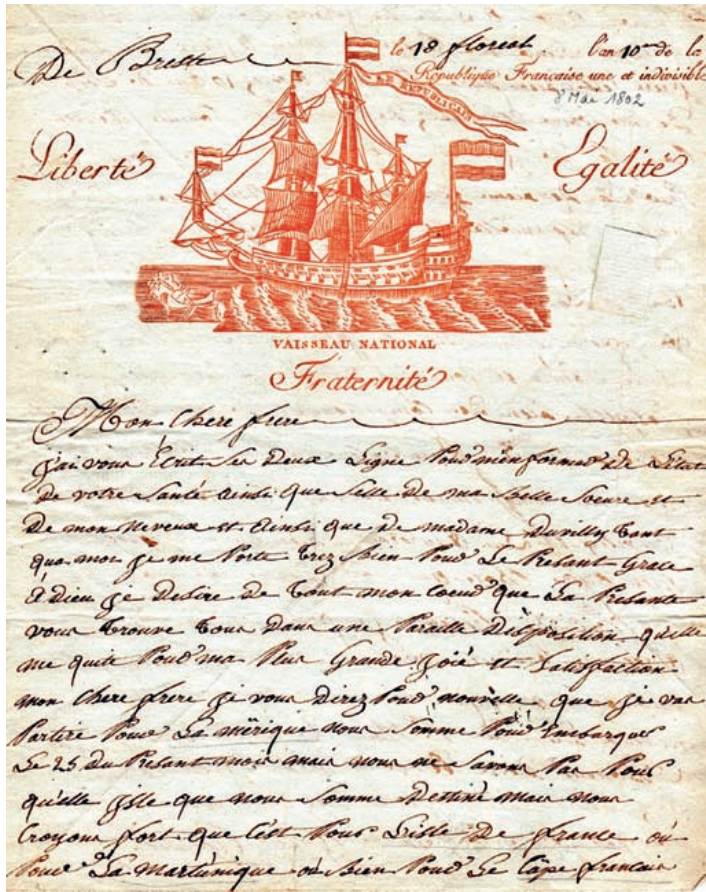 De Brest le 18 floreal. l'an 10me de la
République Française une et indivisible
8 Mai 1802
LE REPUBLICAIN
Liberté Egalité
VAISSEAU NATIONAL
Fraternité
Mon chere frere
j'ai vous Ecrit Ses Deux Ligne Pour m'enformer De L'Etat
De votre Santé ainsi que Selle De ma Belle Soeure et
De mon Neveux et ainsi que De madame Duvilly tant
qua moi je me Porte trez bien Pour Le Presant Grace
a Dieu je Desire De tout mon coeur que La Presante
vous trouve tous Dans une Paraille Disposition qu'elle
me quite Pour ma Plus Grande joie et Satisfaction
mon chere frere je vous Direz Pour nouvelle que je vas
Partire Pour La mérique nous Somme Pour Embarquer
Le 25 du Presant mois mais nous ne Savons Pas Pour
qu'elle jsle que nous Somme Destiné mais nous
Croyons fort que C'est Pour Lisle De france ou
Pour La Martinique ou bien Pour Le Cape francais